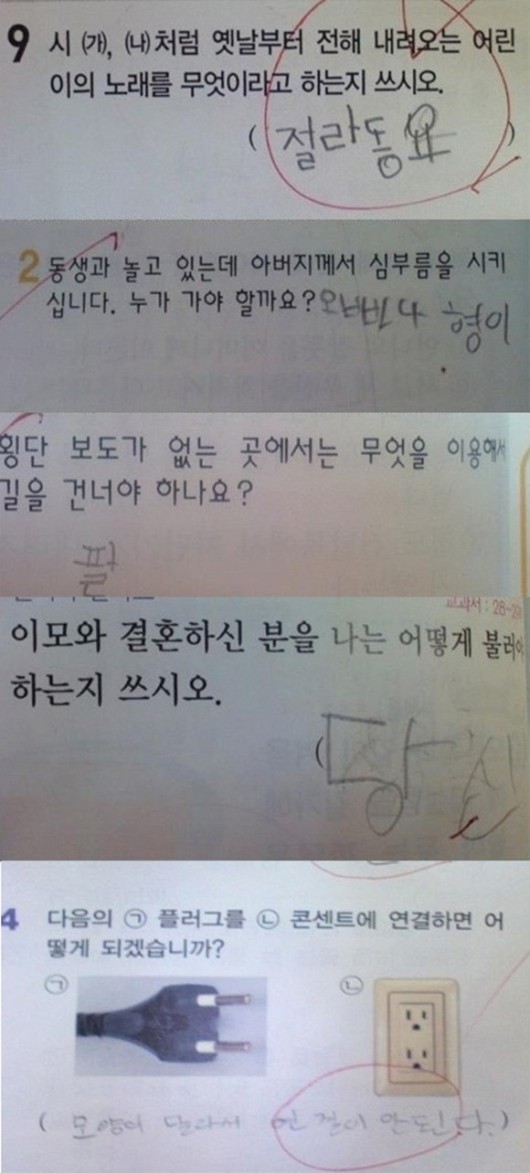 9 시 ㈎, ㈏처럼 옛날부터 전해 내려오는 어린
이의 노래를 무엇이라고 하는지 쓰시오.
( 절라동요 )
2 동생과 놀고 있는데 아버지께서 심부름을 시키
십니다. 누가 가야 할까요? 오빠나 형이
횡단 보도가 없는 곳에서는 무엇을 이용해서
길을 건너야 하나요?
팔
교과서 : 28~29
이모와 결혼하신 분을 나는 어떻게 불러야
하는지 쓰시오.
( 당신
4 다음의 ㉠ 플러그를 ㉡ 콘센트에 연결하면 어
떻게 되겠습니까?
㉠ ㉡
( 모양이 달라서 연결이 안된다. )